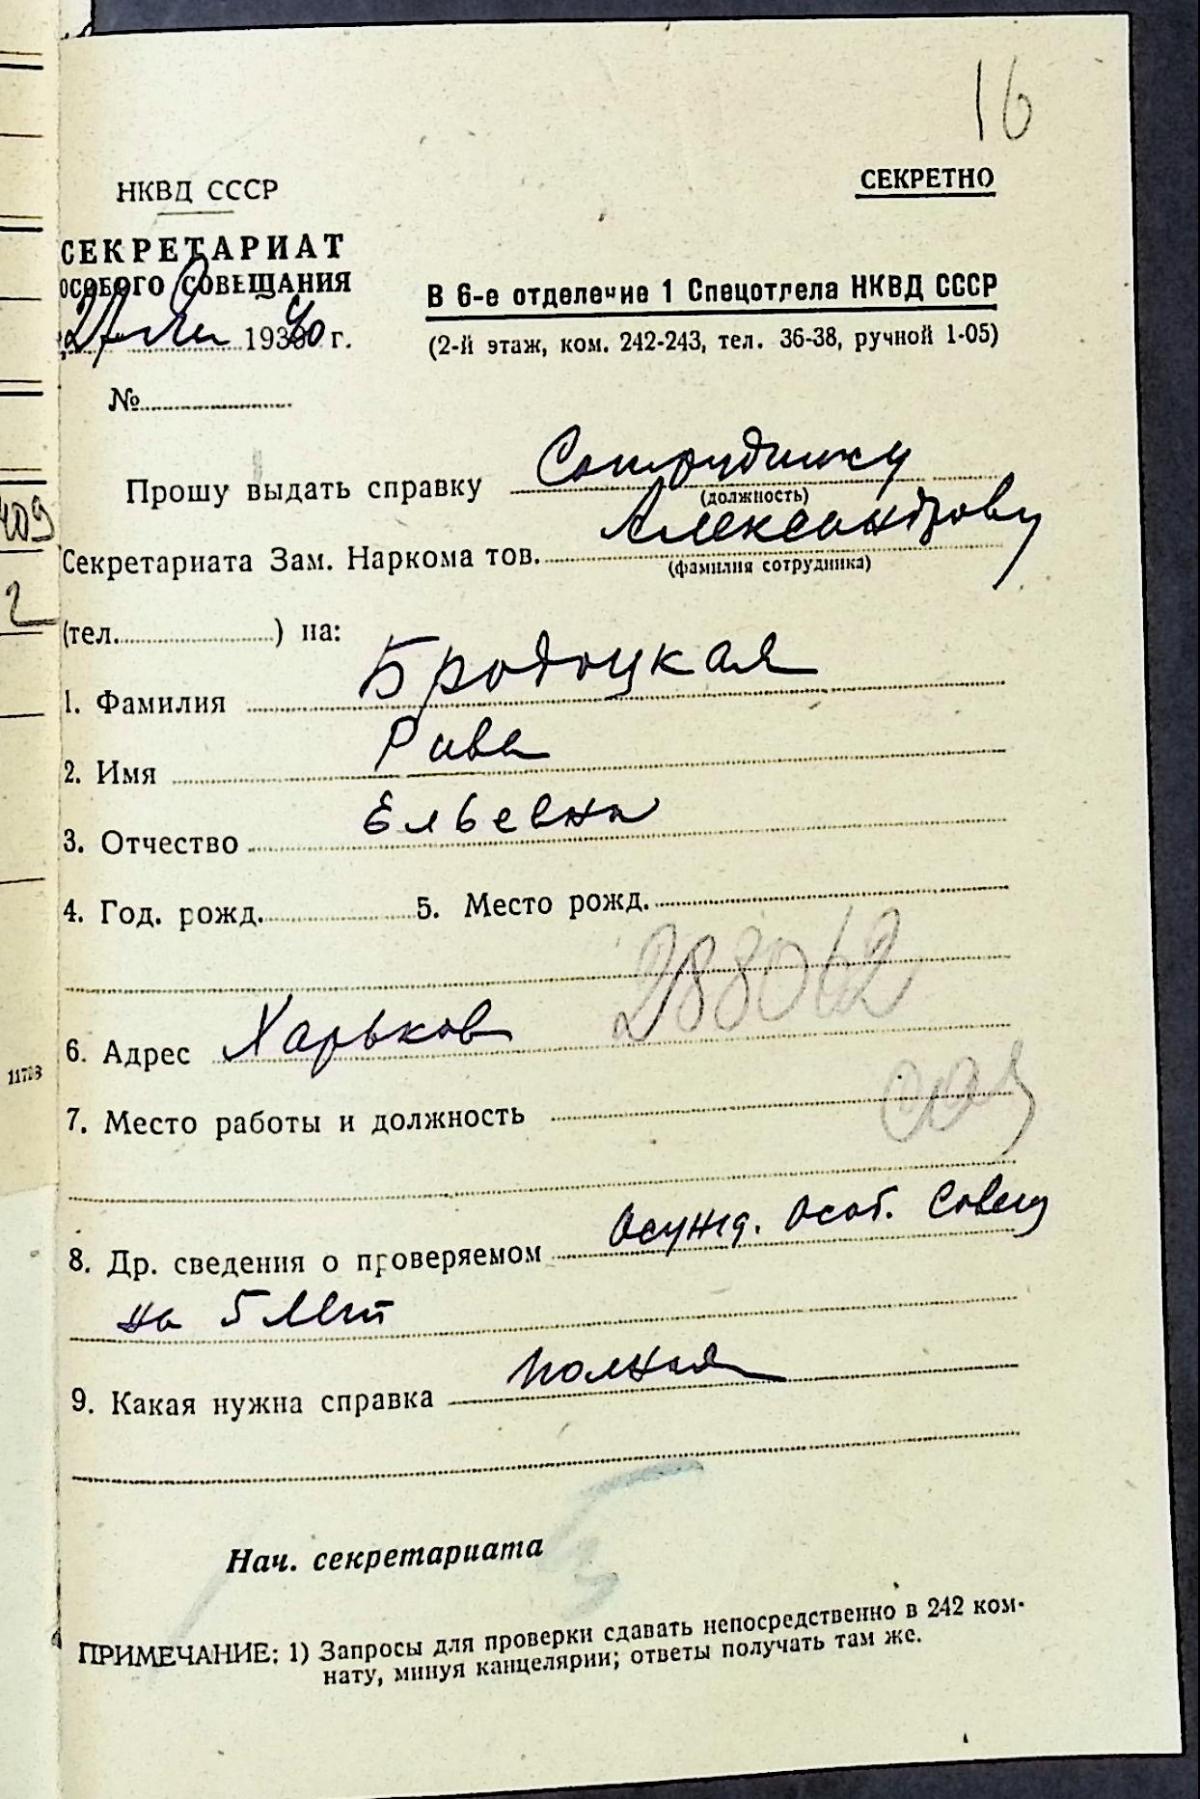 16
НКВД СССР
СЕКРЕТНО
СЕКРЕТАРИАТ
ОСОБОГО СОВЕЩАНИЯ
В 6-е отделение 1 Спецотдела НКВД СССР
27 1940 г.
(2-й этаж, ком. 242-243, тел. 36-38, ручной 1-05)
№
Прошу выдать справку Сотруднику
(должность)
Секретариата Зам. Наркома тов. Александрову
(фамилия сотрудника)
(тел. ) на:
1. Фамилия Бродоцкая
2. Имя Рива
3. Отчество Ельевна
4. Год. рожд. 5. Место рожд.
288062
6. Адрес Харьков
7. Место работы и должность
8. Др. сведения о проверяемом Осужд. Особ. Совещ
на 5 лет
9. Какая нужна справка полная
Нач. секретариата
ПРИМЕЧАНИЕ: 1) Запросы для проверки сдавать непосредственно в 242 ком-
нату, минуя канцелярии; ответы получать там же.
409
2